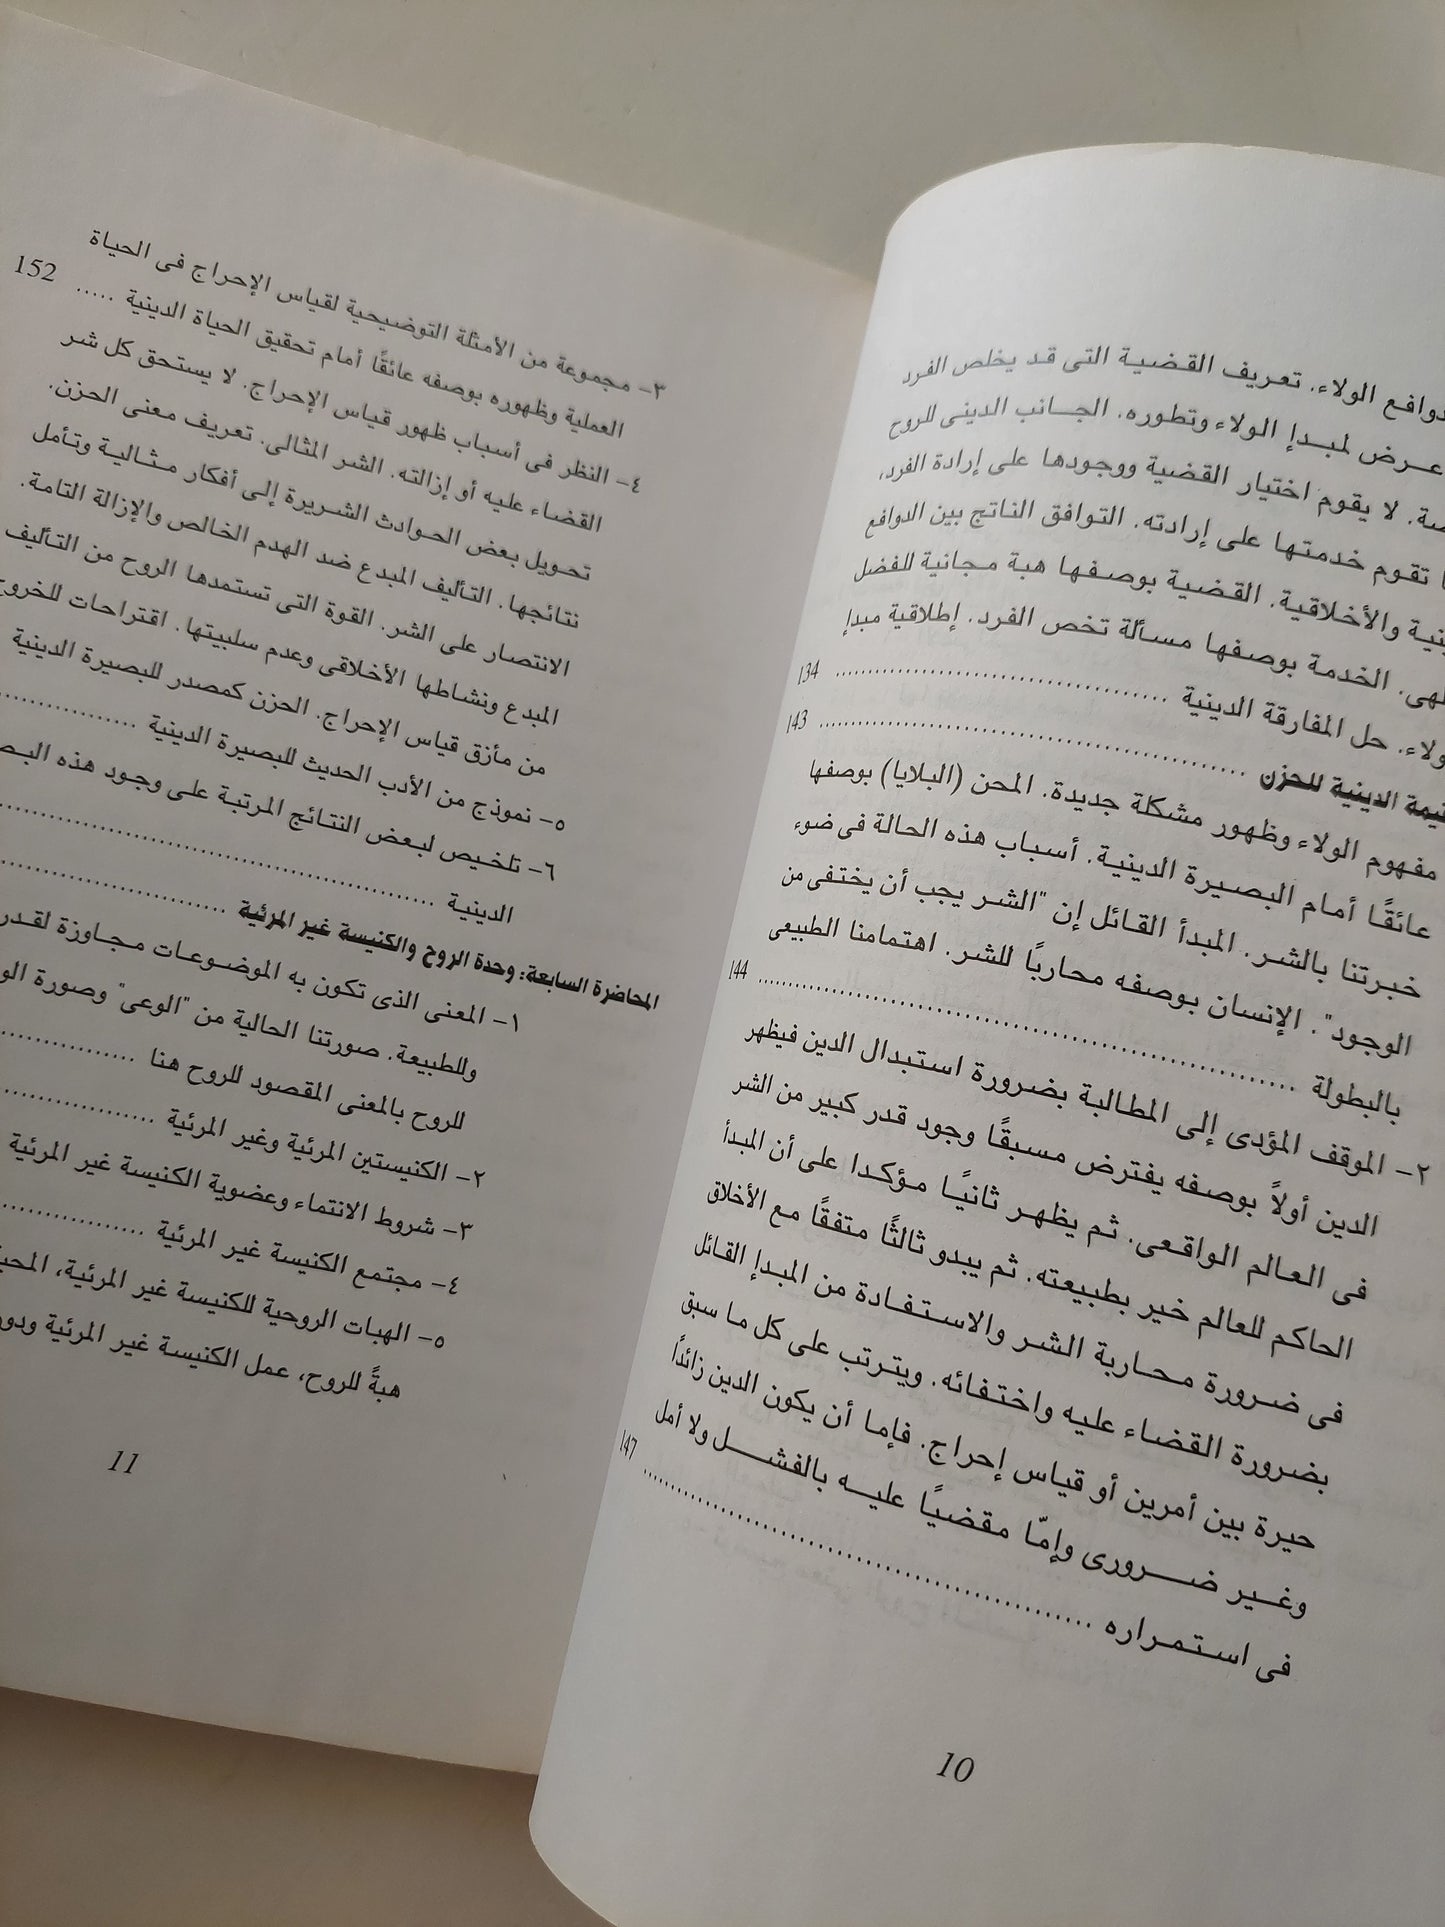 دوافع الولاء. تعريف القضية التى قد يخلص الفرد
عرض لمبدإ الولاء وتطوره. الجانب الدينى للروح
لا يقوم اختيار القضية ووجودها على إرادة الفرد،
تقوم خدمتها على إرادته. التوافق الناتج بين الدوافع
والأخلاقية. القضية بوصفها هبة مجانية للفضل
الخدمة بوصفها مسألة تخص الفرد. إطلاقية مبدإ
حل المفارقة الدينية ........................ 134
الدينية للحزن ........................ 143
مفهوم الولاء وظهور مشكلة جديدة. المحن (البلايا) بوصفها
عائقًا أمام البصيرة الدينية. أسباب هذه الحالة فى ضوء
خبرتنا بالشر. المبدأ القائل إن "الشر يجب أن يختفى من
الوجود". الإنسان بوصفه محاربًا للشر. اهتمامنا الطبيعى
بالبطولة ........................ 144
٢- الموقف المؤدى إلى المطالبة بضرورة استبدال الدين فيظهر
الدين أولاً بوصفه يفترض مسبقًا وجود قدر كبير من الشر
فى العالم الواقعى. ثم يظهر ثانيًا مؤكدا على أن المبدأ
الحاكم للعالم خير بطبيعته. ثم يبدو ثالثًا متفقًا مع الأخلاق
فى ضرورة محاربة الشر والاستفادة من المبدإ القائل
بضرورة القضاء عليه واختفائه. ويترتب على كل ما سبق
حيرة بين أمرين أو قياس إحراج. فإما أن يكون الدين زائدًا
وغير ضرورى وإمّا مقضيًا عليه بالفشل ولا أمل
فى استمراره ........................ 147
10
٣- مجموعة من الأمثلة التوضيحية لقياس الإحراج فى الحياة
العملية وظهوره بوصفه عائقًا أمام تحقيق الحياة الدينية ..... 152
٤- النظر فى أسباب ظهور قياس الإحراج. لا يستحق كل شر
القضاء عليه أو إزالته. الشر المثالى. تعريف معنى الحزن.
تحويل بعض الحوادث الشريرة إلى أفكار مثالية وتأمل
نتائجها. التأليف المبدع ضد الهدم الخالص والإزالة التامة.
الانتصار على الشر. القوة التى تستمدها الروح من التأليف
المبدع ونشاطها الأخلاقى وعدم سلبيتها. اقتراحات للخروج
من مأزق قياس الإحراج. الحزن كمصدر للبصيرة الدينية
٥- نموذج من الأدب الحديث للبصيرة الدينية ...............
٦- تلخيص لبعض النتائج المرتبة على وجود هذه
الدينية ........................
المحاضرة السابعة: وحدة الروح والكنيسة غير المرئية ...............
١- المعنى الذى تكون به الموضوعات مجاوزة
وللطبيعة. صورتنا الحالية من "الوعى" وصورة
للروح بالمعنى المقصود للروح هنا ...............
٢- الكنيستين المرئية وغير المرئية ...............
٣- شروط الانتماء وعضوية الكنيسة غير المرئية
٤- مجتمع الكنيسة غير المرئية ...............
٥- الهبات الروحية للكنيسة غير المرئية،
هبةً للروح، عمل الكنيسة غير المرئية
11